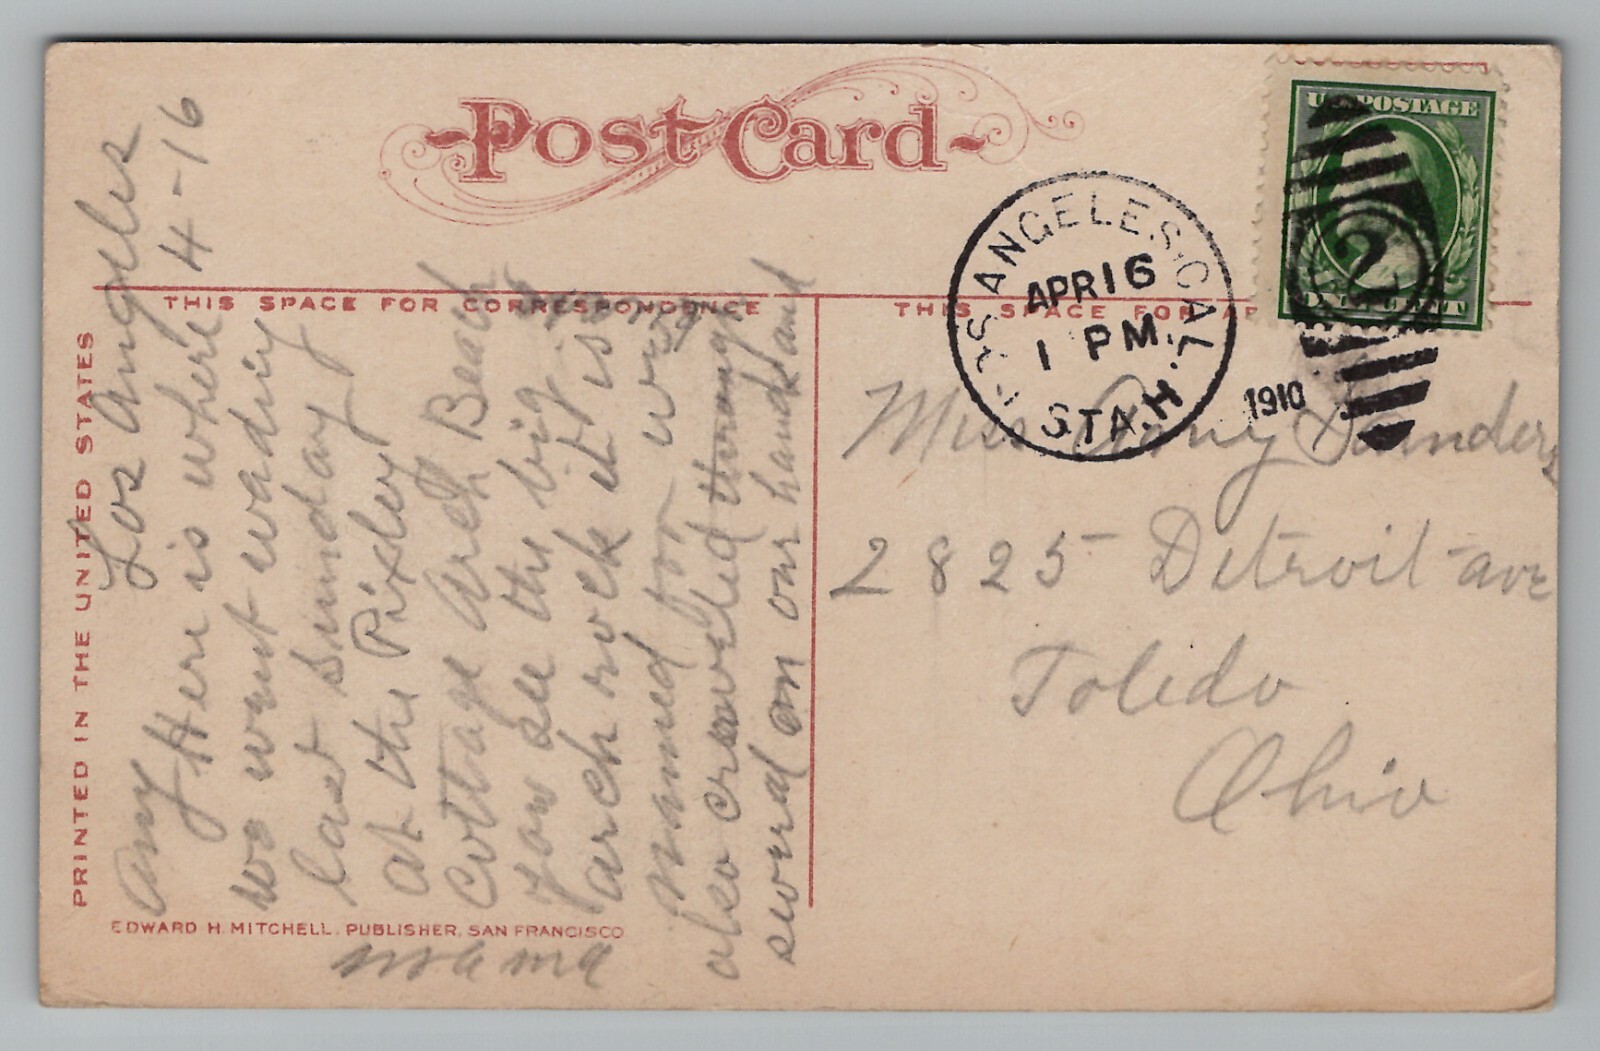 Post Card
THIS SPACE FOR CORRESPONDENCE
THIS SPACE FOR
PRINTED IN THE UNITED STATES
EDWARD H. MITCHELL, PUBLISHER, SAN FRANCISCO
U.S. POSTAGE
LOS ANGELES, CAL.
APR 16
1 PM.
1910
STA. H
2
Los Angeles
4-16
Amy Here is where
we went wading
last Sunday
at the Pixley
Cottage Arch Beach
You see the big
arch rock it is
named for
also crawled through
several on our hands and
mama
Miss Amy Saunders
2825 Detroit ave
Toledo
Ohio